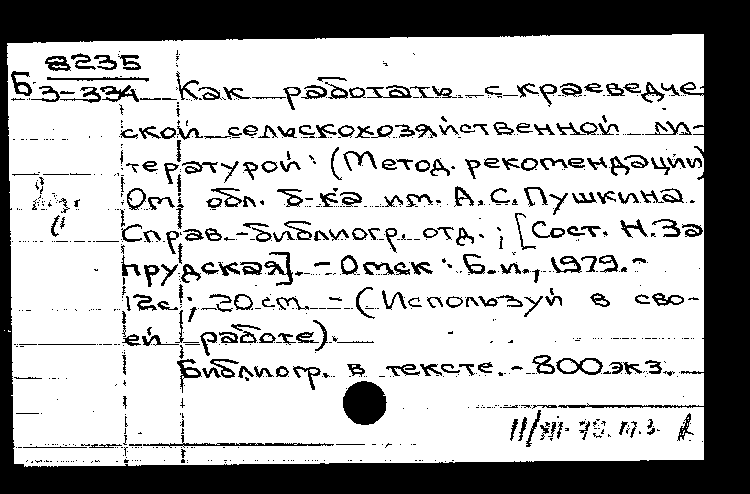 8235
Б 3-334 Как работать с краеведче-
ской сельскохозяйственной ли-
тературой : (Метод. рекомендации)
Ом. обл. б-ка им. А.С.Пушкина.
Справ.-библиогр. отд. ; [Сост. Н.За
прудская]. - Омск : Б.и., 1979.-
12с. ; 20 см. - (Используй в сво-
ей работе).
Библиогр. в тексте. - 800 экз.